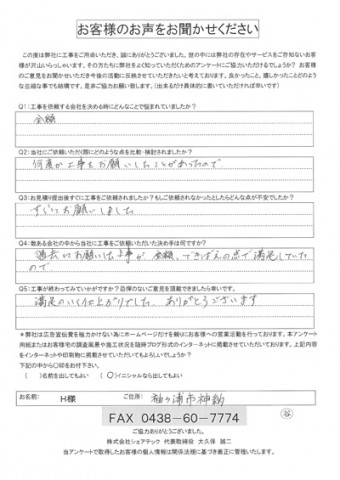 お客様のお声をお聞かせください
この度は弊社に工事をご用命いただき、誠にありがとうございます。世の中には弊社の存在やサービスをご存知ないお客
様が沢山いらっしゃいます。その方たちに弊社をよく知っていただくためのアンケートにご協力いただけるでしょうか? お客様
のご意見をお聞かせいただき今後の活動に反映させていただきたいと考えております。良かったこと、嬉しかったことどのよう
な些細な事でも結構です。是非ご協力お願い致します。(出来るだけ具体的に書いていただければ幸いです)
Q1:工事を依頼する会社を決める時にどんなことで悩まれていましたか?
金額
Q2:当社にご依頼いただく際にどのような点を比較・検討されましたか?
何度か工事をお願いしたことがあったので
Q3:お見積り提出後すぐに工事をご依頼されましたか?もしご依頼されなかったとしたらどんな点が不安でしたか?
すぐにお願いしました
Q4:数ある会社の中から当社に工事をご依頼いただいた決め手は何ですか?
過去にお願いした工事が金額、できばえの点で満足していた
ので
Q5:工事が終わってみていかがですか?忌憚のないご意見を頂戴できましたら幸いです。
満足のいく仕上がりでした ありがとうございます
*弊社は広告宣伝費を極力かけない為にホームページだけを頼りにお客様への営業活動を行っております。本アンケート
用紙またはお客様宅の調査風景や施工状況を随時ブログ形式のインターネットに掲載させていただいております。上記内容
をインターネットや印刷物に掲載させていただいてもよろしいでしょうか?
下記の中から〇印をお付け下さい。
( )名前を出してもよい (〇)イニシャルなら出してもよい
お名前: H様 ご住所: 袖ヶ浦市神納
FAX 0438-60-7774
ご協力ありがとうございました。
株式会社シェアテック 代表取締役 大久保 誠二
当アンケートで取得したお客様の個人情報は関係法規に基づき厳正に管理いたします。